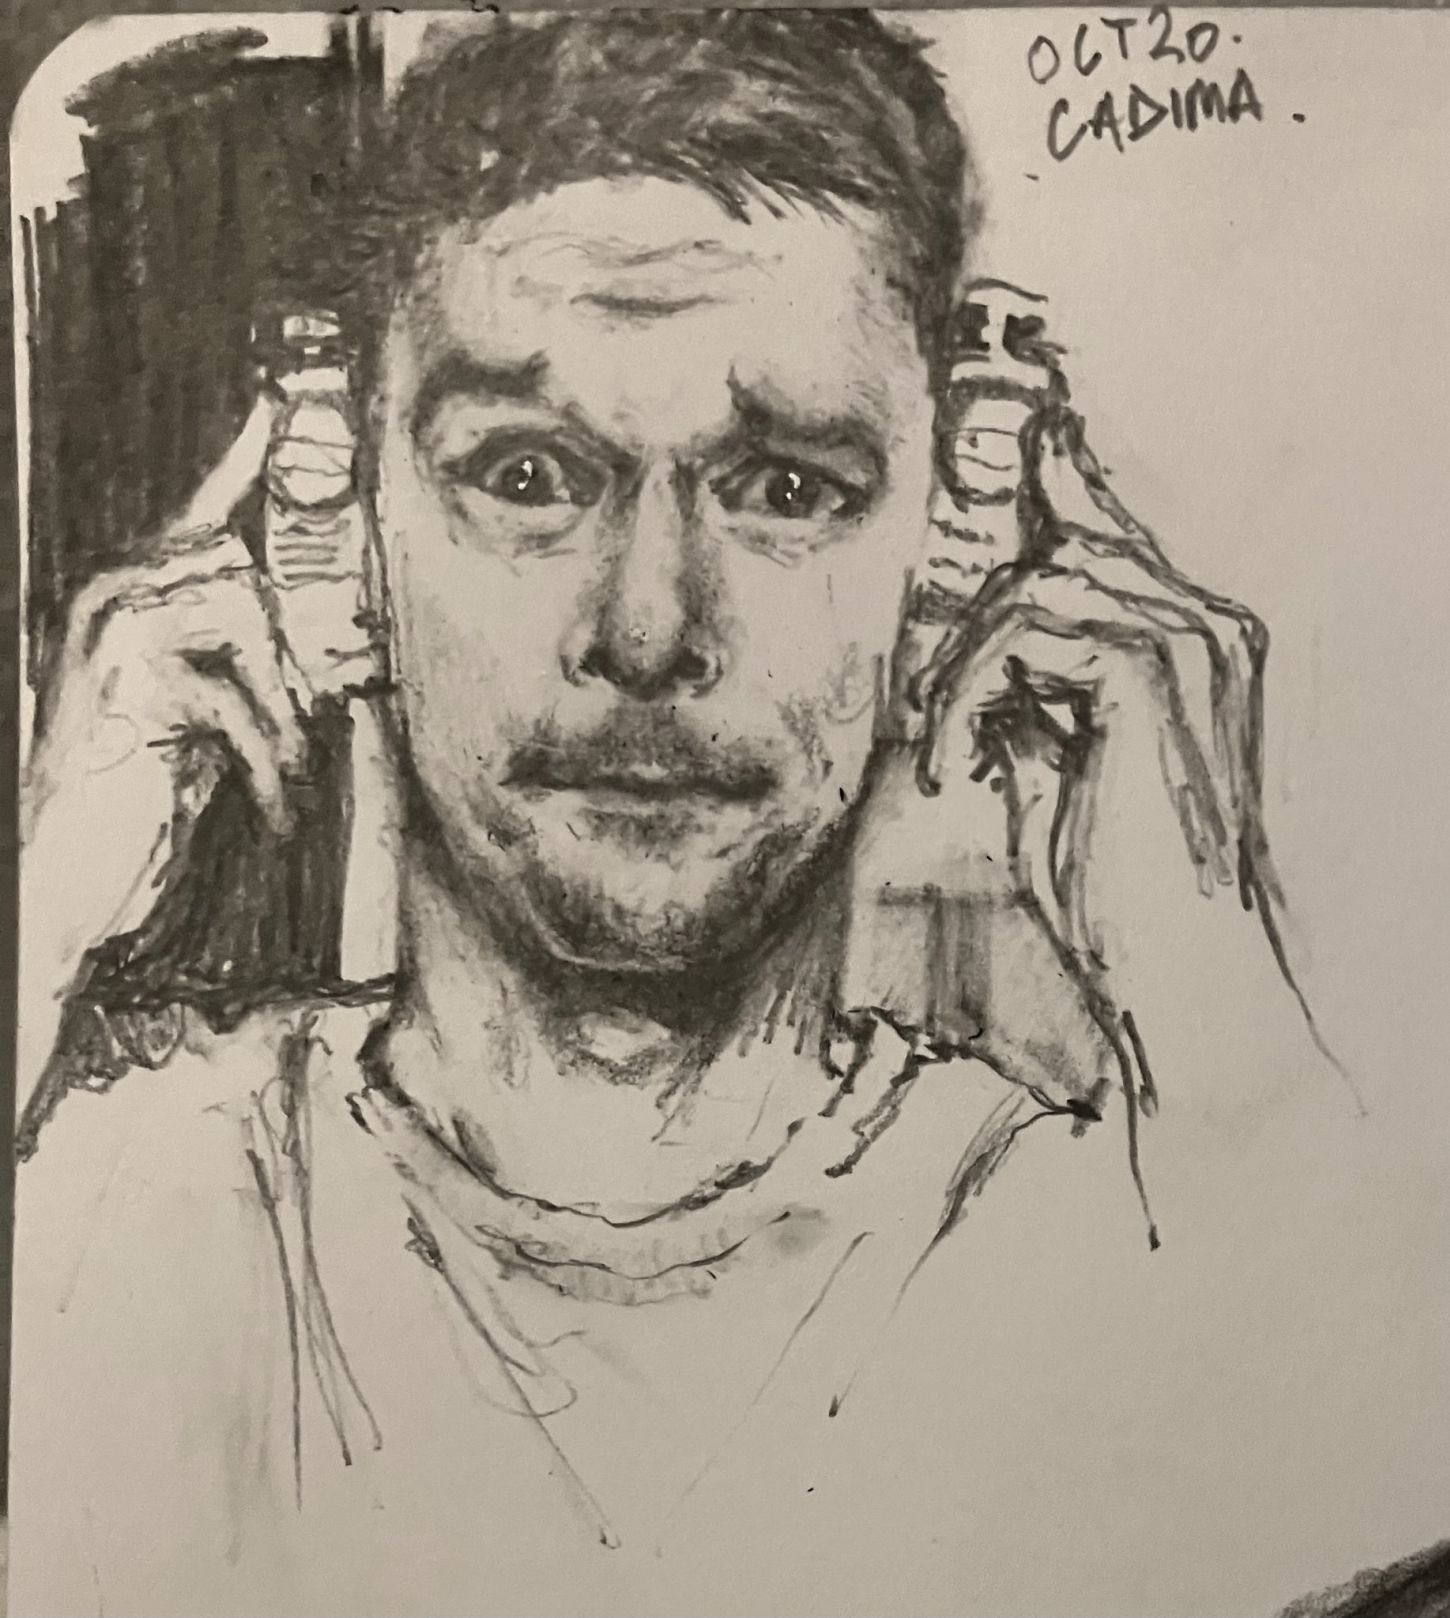 OCT20.
CADIMA.